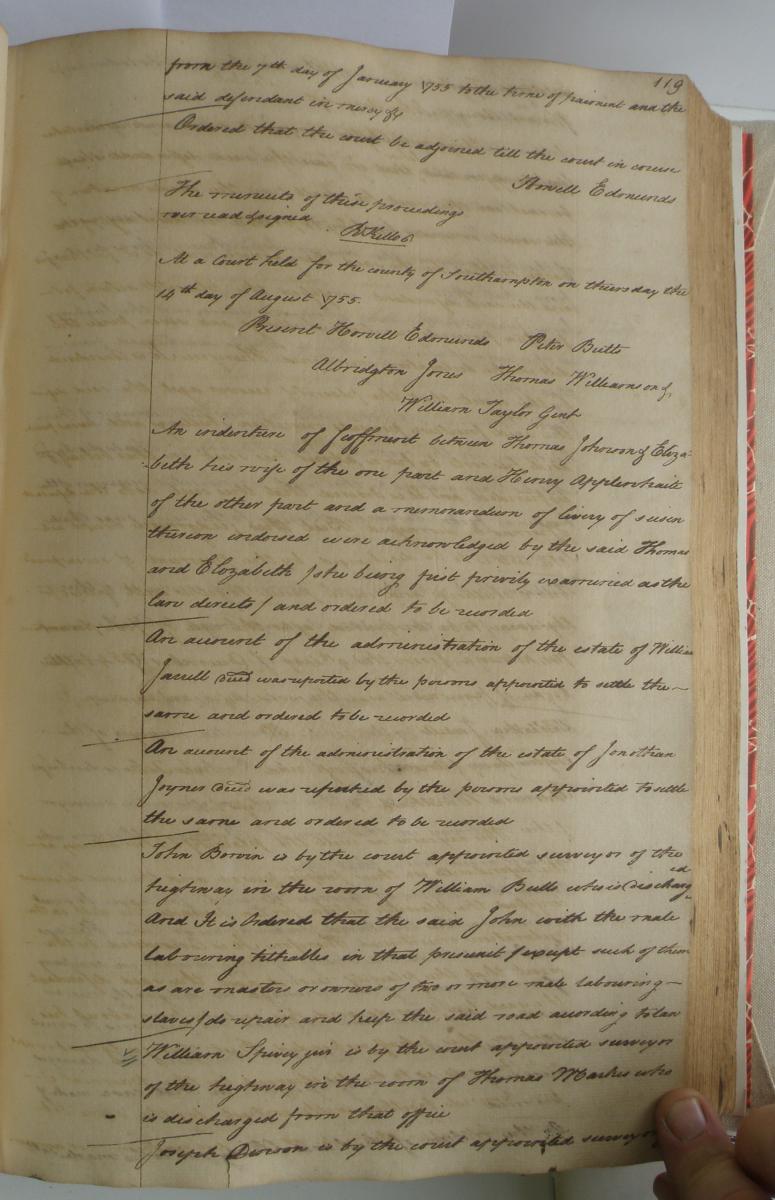 119
from the 7th day of January 1755 to the time of paiment and the
said defendant in mercy &c
Ordered that the court be adjorned till the court in course
Howell Edmunds
The minuits of these proceedings
wer read & signed
R Kello
At a Court held for the county of Southampton on thursday the
14th day of August 1755
Present Howell Edmunds Peter Butts
Albridgton Jones Thomas Williamson &
William Taylor Gent
An indenture of feoffment between Thomas Johnson & Eliza-
beth his wife of the one part and Henry Applewhaite
of the other part and a memorandum of livery of seisen
thereon indorsed were acknowledged by the said Thomas
and Elizabeth / she being first privily examined as the
law directs / and ordered to be recorded
An account of the administration of the estate of William
Jarrell deced was reported by the persons appointed to settle the
same and ordered to be recorded
An account of the administration of the estate of Jonathan
Joyner deced was reported by the persons appointed to settle
the same and ordered to be recorded
John Bowin is by the court appointed surveyor of the
highway in the room of William Bulls who is discharged
And It is Ordered that the said John with the male
labouring tithables in that presinit / except such of them
as are masters or owners of two or more male labouring
slaves / do repair and keep the said road acording to law
William Spivey junr is by the court appointed surveyor
of the highway in the room of Thomas Marks who
is discharged from that office
Joseph is by the court appointed surveyor